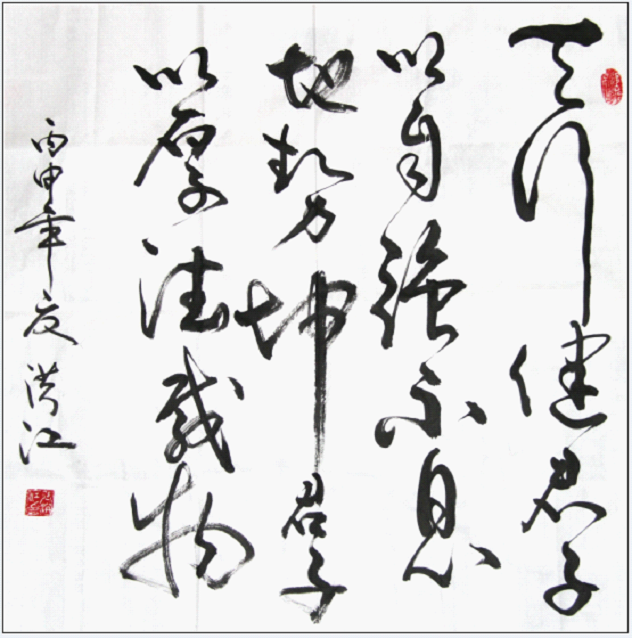 天行健君子
以自强不息
地势坤君子
以厚德载物
丙申年夏洪江